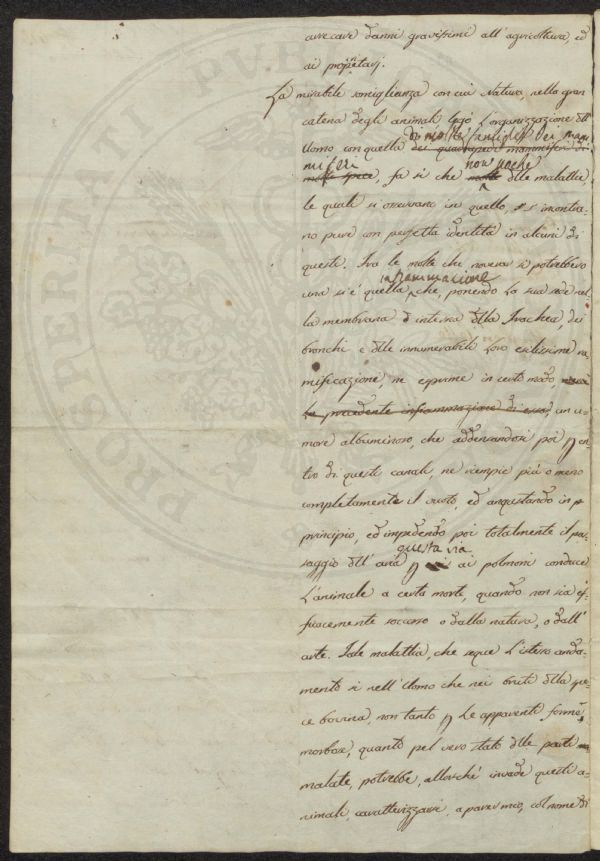 arrecare danni gravissimi all'agricoltura, ed
ai proprietarj.
La mirabile somiglianza con cui Natura, nella gran
catena degli animali legò l'organizzazione dell'
di molte famiglie dei mam
Uomo con quella dei quadrupedi mammiferi di
miferi non poche
molte spece, fa sì che molte dlle malattie,
le quali si osservano in quello, si incontra-
no pure con perfetta identità in alcuni di
questi. Fra le molte che noverar si potrebbero
infiammazione
una si è quella che, ponendo la sua sede nel-
la membrana interna dlla Trachea dei
bronchi e dlle innumerabili loro esilissime ra-
mificazione, ne esprime in certo modo,
la precedente infiammazione di essa, un u-
more albuminoso, che addensandosi poi en-
tro di questi canali, ne riempie più o meno
completamente il vuoto, ed angustando in
principio, ed impedendo poi totalmente il pas-
questa via
saggio dll'aria ai polmoni conduce
l'animale a certa morte, quando non sia ef-
ficacemente soccorso o dalla natura, o dall'
arte. Tale malattia, che segue l'istesso anda-
mento sì nell'Uomo che nei bruti dlla spe-
ce bovina, non tanto le apparenti forme
morbose, quanto pel vero stato dlle parti
malate, potrebbe, allorché invade questi a-
nimali, caratterizzarsi, a parer mio, col nome di
PROSPERITATI PUB